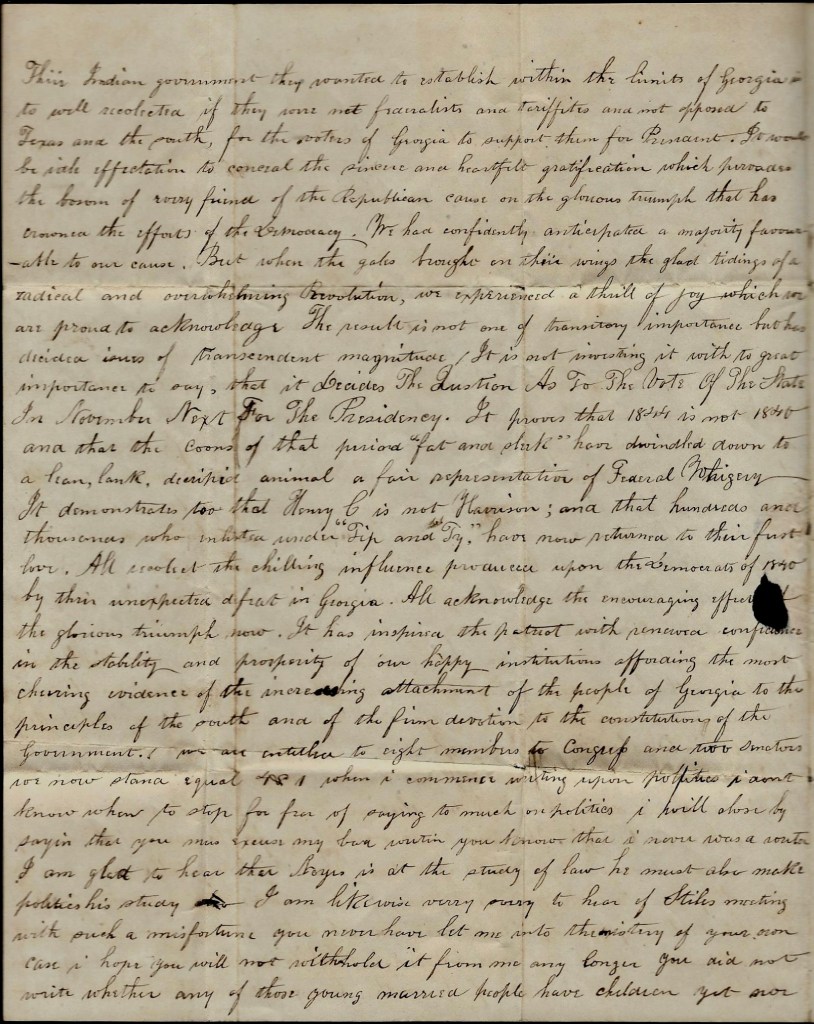 Thiir Indian government they wanted to establish within the limits of Georgia is
to well recolected if they were not federalists and tariffites and not opposed to
Texas and the south, for the voters of Georgia to support them for President. It would
be idle effectation to conceal the sincere and heartfelt gratification which pervades
the bosom of every friend of the Republican cause on the glorious triumph that has
crowned the efforts of the Democracy. We had confidently anticipated a majority favour
-able to our cause. But when the gales brought on thiir wings the glad tidings of a
radical and overwhelming Revolution, we experienced a thrill of joy which we
are proud to acknowledge The result is not one of transitory importance but has
decided issues of transcendent magnitude / It is not investing it with to great
importance to say, that it Decides The Qustion As To The Vote Of The State
In November Next For The Presidency. It proves that 1844 is not 1840
and that the coons of that period "fat and slick" have dwindled down to
a lean, lank, decripid animal a fair representation of Federal Whigery
It demonstrates too that Henry C is not Harrison; and that hundreds and
thousands who enlisted under "Tip and "Ty." have now returned to their first
love. All recolect the chilling influence produced upon the Democrats of 1840
by their unexpected defeat in Georgia. All acknowledge the encouraging effect
the glorious triumph now. It has inspired the patriot with renewed confidence
in the stability and prosperity of our happy institutions affording the most
cheering evidence of the increasing attachment of the people of Georgia to the
principles of the south and of the firm devotion to the constitutions of the
Government. / we are entitled to eight members to Congress and two senators
we now stand equal when i commence writing upon politics i dont
know when to stop for fear of saying to much on politics i will close by
sayin that you mus excuse my bad writin you know that i never was a writer
I am glad to hear that is at the study of law he must also make
politics his study I am likewise verry sorry to hear of Stiles meeting
with such a misfortune you never have let me into the mistery of your own
case i hope you will not withhold it from me any longer you did not
write whether any of those young married people have children yet nor